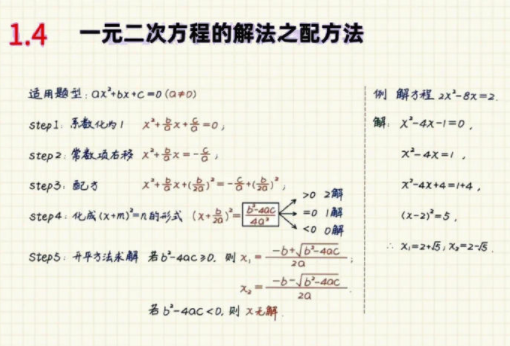 1.4 一元二次方程的解法之配方法
适用题型：ax²+bx+c=0(a≠0)
step1：系数化为1 x²+b/a x+c/a=0；
step2：常数项右移 x²+b/a x=-c/a；
step3：配方 x²+b/a x+(b/2a)²=-c/a+(b/2a)²；
step4：化成(x+m)²=n的形式 (x+b/2a)²=b²-4ac/4a²
>0 2解
=0 1解
<0 0解
step5：开平方法求解 若b²-4ac≥0，则 x₁=-b+√b²-4ac/2a；
x₂=-b-√b²-4ac/2a.
若b²-4ac<0，则x无解.
例 解方程 2x²-8x=2.
解：x²-4x-1=0，
x²-4x=1，
x²-4x+4=1+4，
(x-2)²=5，
∴ x₁=2+√5；x₂=2-√5.